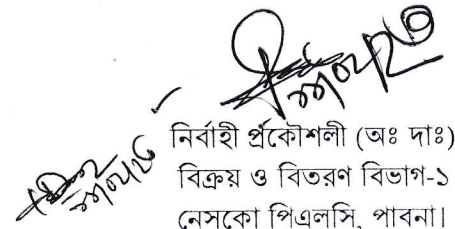 নির্বাহী প্রকৌশলী (অঃ দাঃ)
বিক্রয় ও বিতরণ বিভাগ-১
নেসকো পিএলসি, পাবনা।